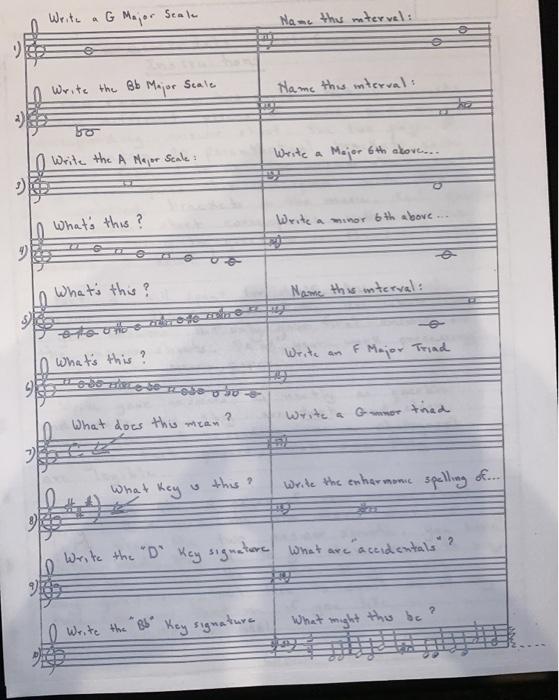 Write a G Major Scale
Name this interval:
1)
11)
Write the Bb Major Scale
Name this interval:
2)
Write the A Major Scale:
Write a Major 6th above...
3)
What's this?
Write a minor 6th above...
4)
What's this?
Name this interval:
5)
What's this?
Write an F Major Triad
6)
What does this mean?
Write a G minor triad
7)
What Key is this?
Write the enharmonic spelling of...
8)
Write the "D" Key signature
What are "accidentals"?
9)
Write the "Bb" Key signature
What might this be?
10)